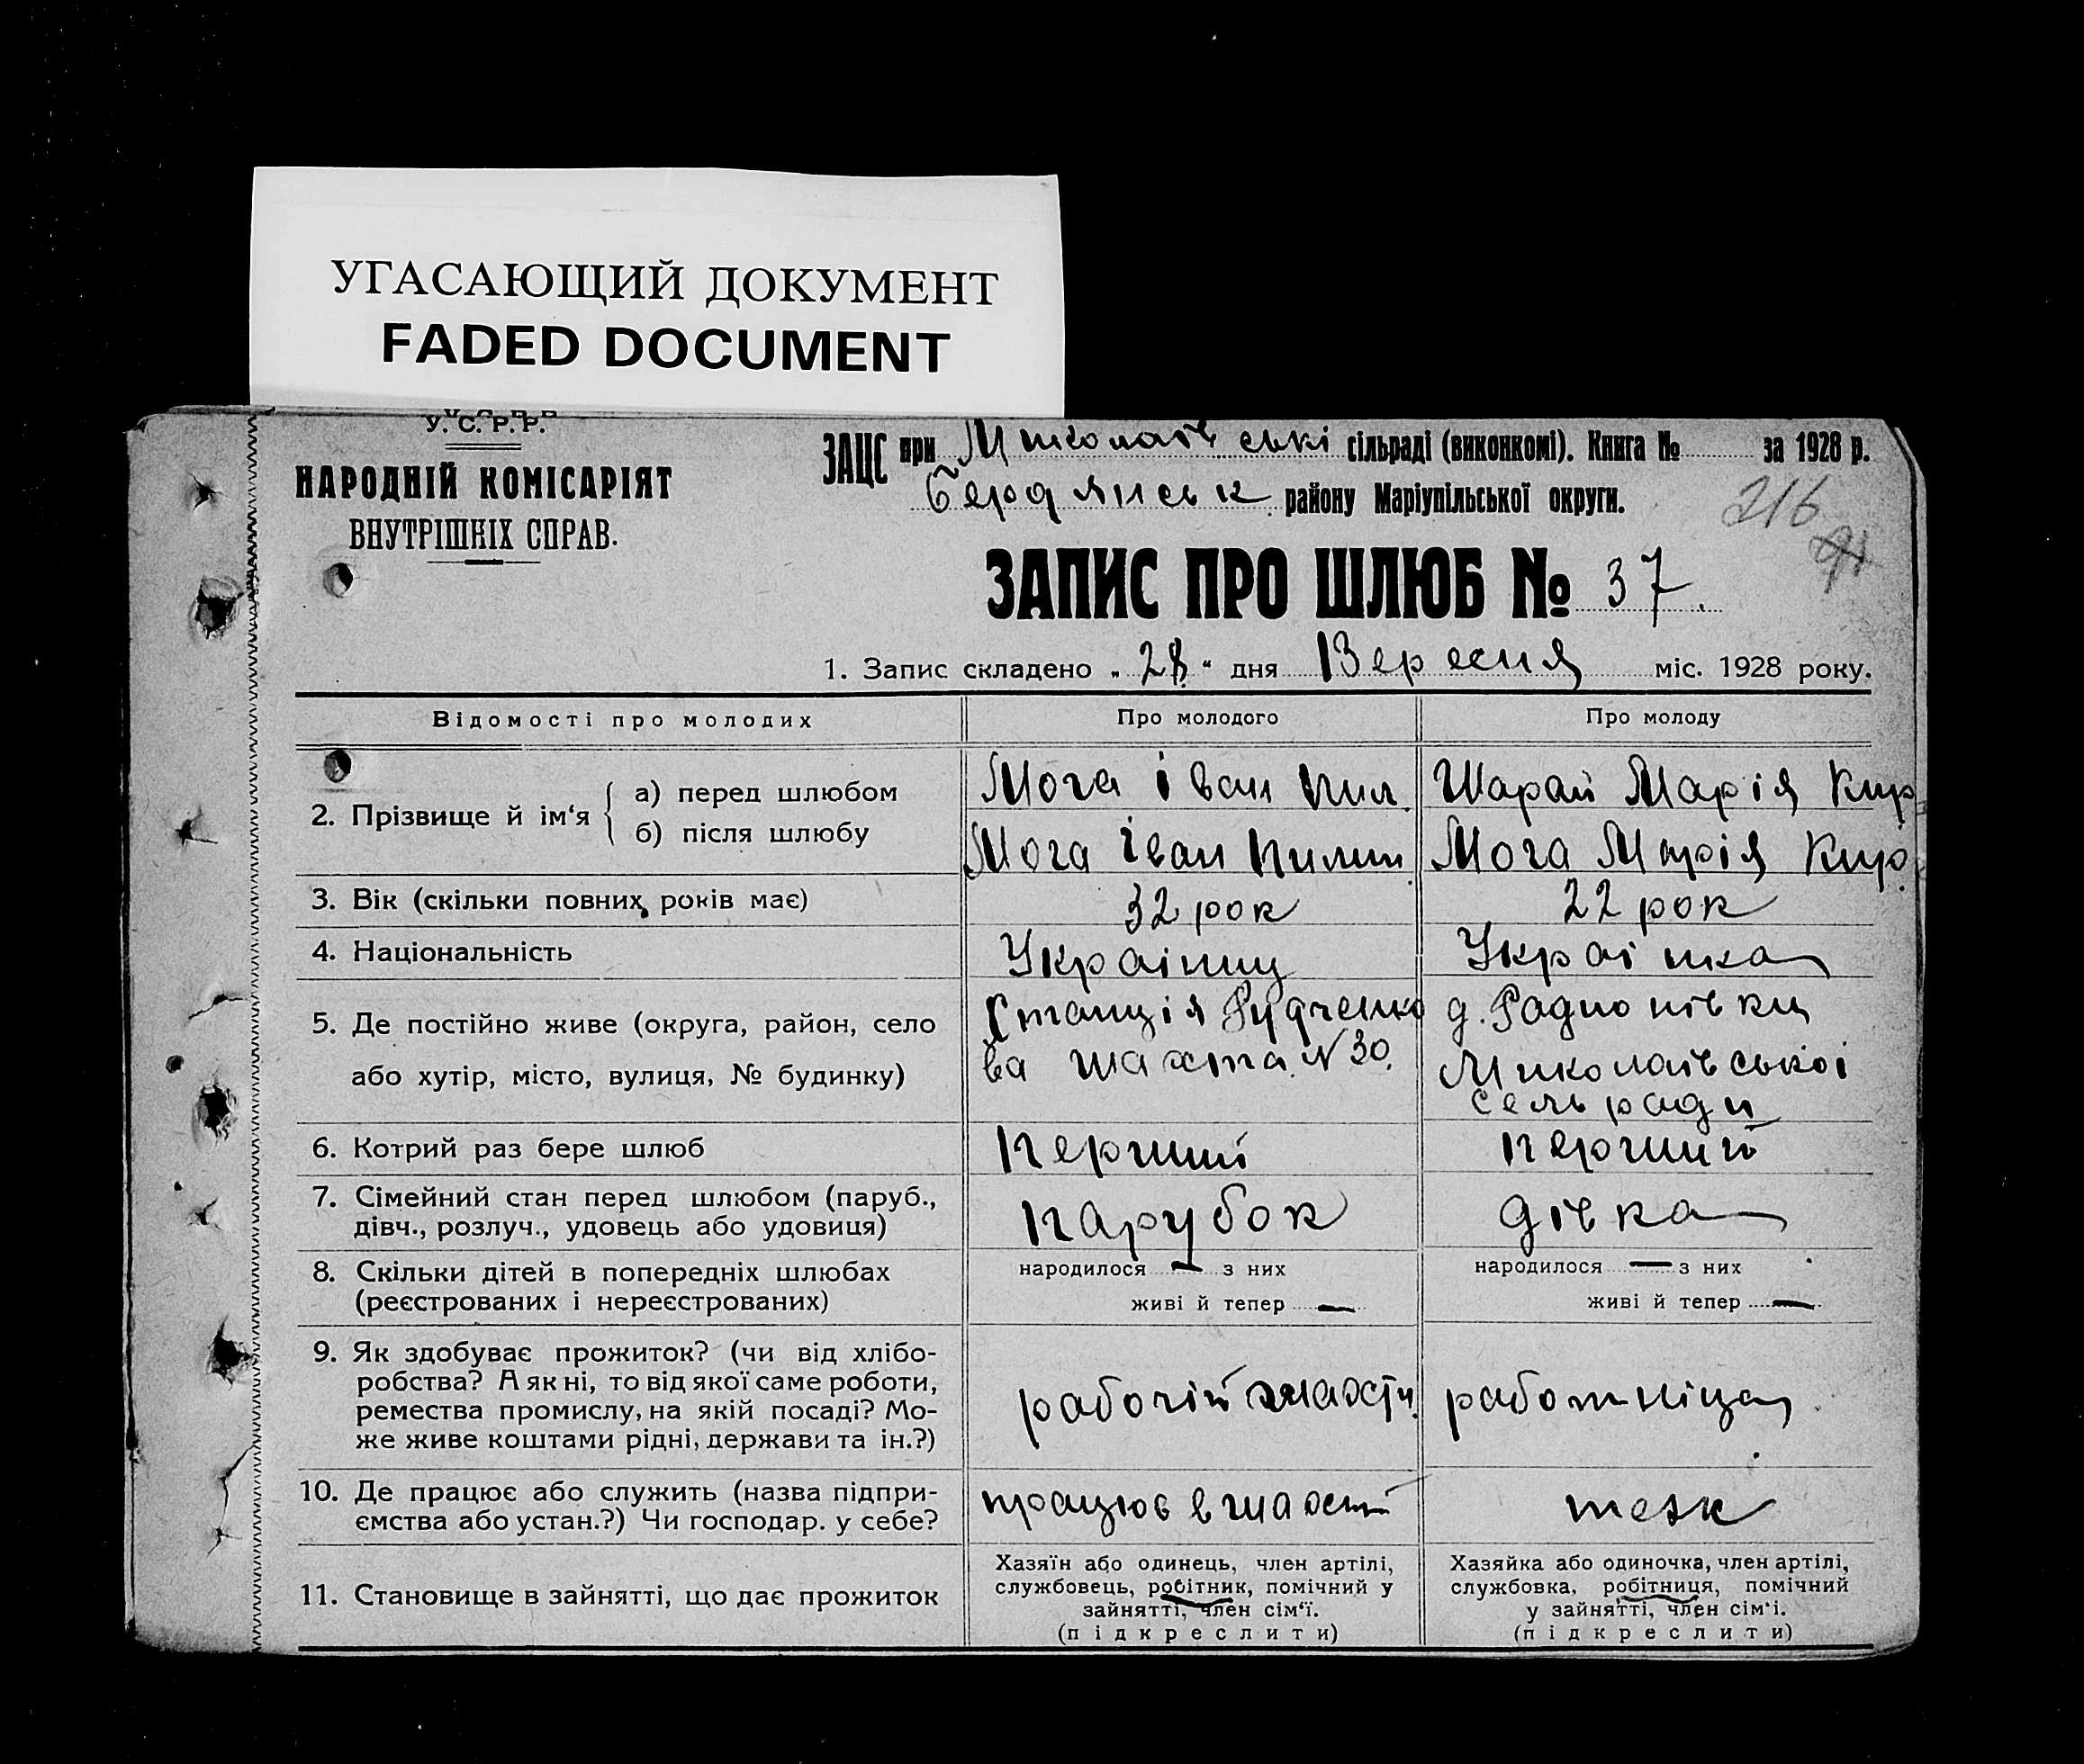 УГАСАЮЩИЙ ДОКУМЕНТ
FADED DOCUMENT
У. С. Р. Р.
НАРОДНІЙ КОМІСАРІЯТ
ВНУТРІШНІХ СПРАВ.
ЗАЦС при Миколаївські сільраді (виконкомі). Книга № за 1928 р.
Бердянськ району Маріупільської округи.
216
ЗАПИС ПРО ШЛЮБ № 37.
1. Запис складено „28“ дня Вересня міс. 1928 року.
Відомості про молодих Про молодого Про молоду
2. Прізвище й ім‘я
а) перед шлюбом Мога Іван Пил. Шарай Марія Кир
б) після шлюбу Мога Іван Пилип. Мога Марія Кир.
3. Вік (скільки повних років має) 32 рок 22 рок
4. Національність Українц Українка
5. Де постійно живе (округа, район, село
або хутір, місто, вулиця, № будинку)
Станція Рудченко
ва шахта N 30.
д. Радионівки
Миколаївської
сельради
6. Котрий раз бере шлюб перший перший
7. Сімейний стан перед шлюбом (паруб.,
дівч., розлуч., удовець або удовиця)
парубок дівка
8. Скільки дітей в попередніх шлюбах
(реєстрованих і нереєстрованих)
народилося — з них
живі й тепер —
народилося — з них
живі й тепер —
9. Як здобуває прожиток? (чи від хлібо-
робства? А як ні, то від якої саме роботи,
ремества промислу, на якій посаді? Мо-
же живе коштами рідні, держави та ін.?)
рабочій шахти. работніца
10. Де працює або служить (назва підпри-
ємства або устан.?) Чи господар. у себе?
працює в шахті теж
11. Становище в зайнятті, що дає прожиток
Хазяїн або одинець, член артілі,
службовець, робітник, помічний у
зайнятті, член сім‘ї.
(підкреслити)
Хазяйка або одиночка, член артілі,
службовка, робітниця, помічний
у зайнятті, член сім‘і.
(підкреслити)